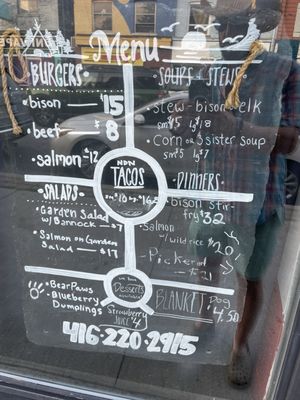 Menu
BURGERS
• bison 15
• beef $8
salmon $12
SALADS
• Garden Salad
w/ Bannock $7
• Salmon on Garden
Salad $17
• BearPaws
• Blueberry
Dumplings
416-220-2915
NDN
TACOS
Desserts
Strawberry
Juice $4
SOUPS & STEWS
• Stew - bison or elk
sm$15 lg$18
• Corn or 3 sister soup
sm$5 lg$7
DINNERS
bison stir-
fry $32
• Salmon
w/ wild rice $20
• Pickerel
$21
BLANKET Dog
$4.50